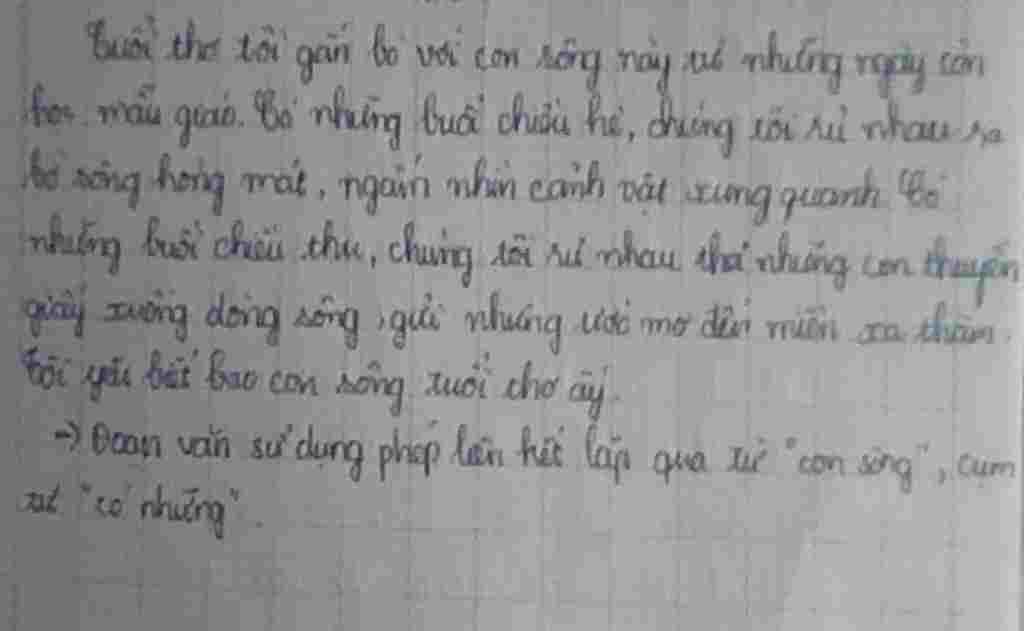 Tuổi thơ tôi gắn bó với con sông này từ những ngày còn
học mẫu giáo. Có những buổi chiều hè, chúng tôi rủ nhau ra
bờ sông hóng mát, ngắm nhìn cảnh vật xung quanh. Có
những buổi chiều thu, chúng tôi rủ nhau thả những con thuyền
giấy xuống dòng sông, gửi những ước mơ đến miền xa thẳm.
Tôi yêu biết bao con sông tuổi thơ ấy.
→ Đoạn văn sử dụng phép liên kết lặp qua từ "con sông", cụm
từ "có những".